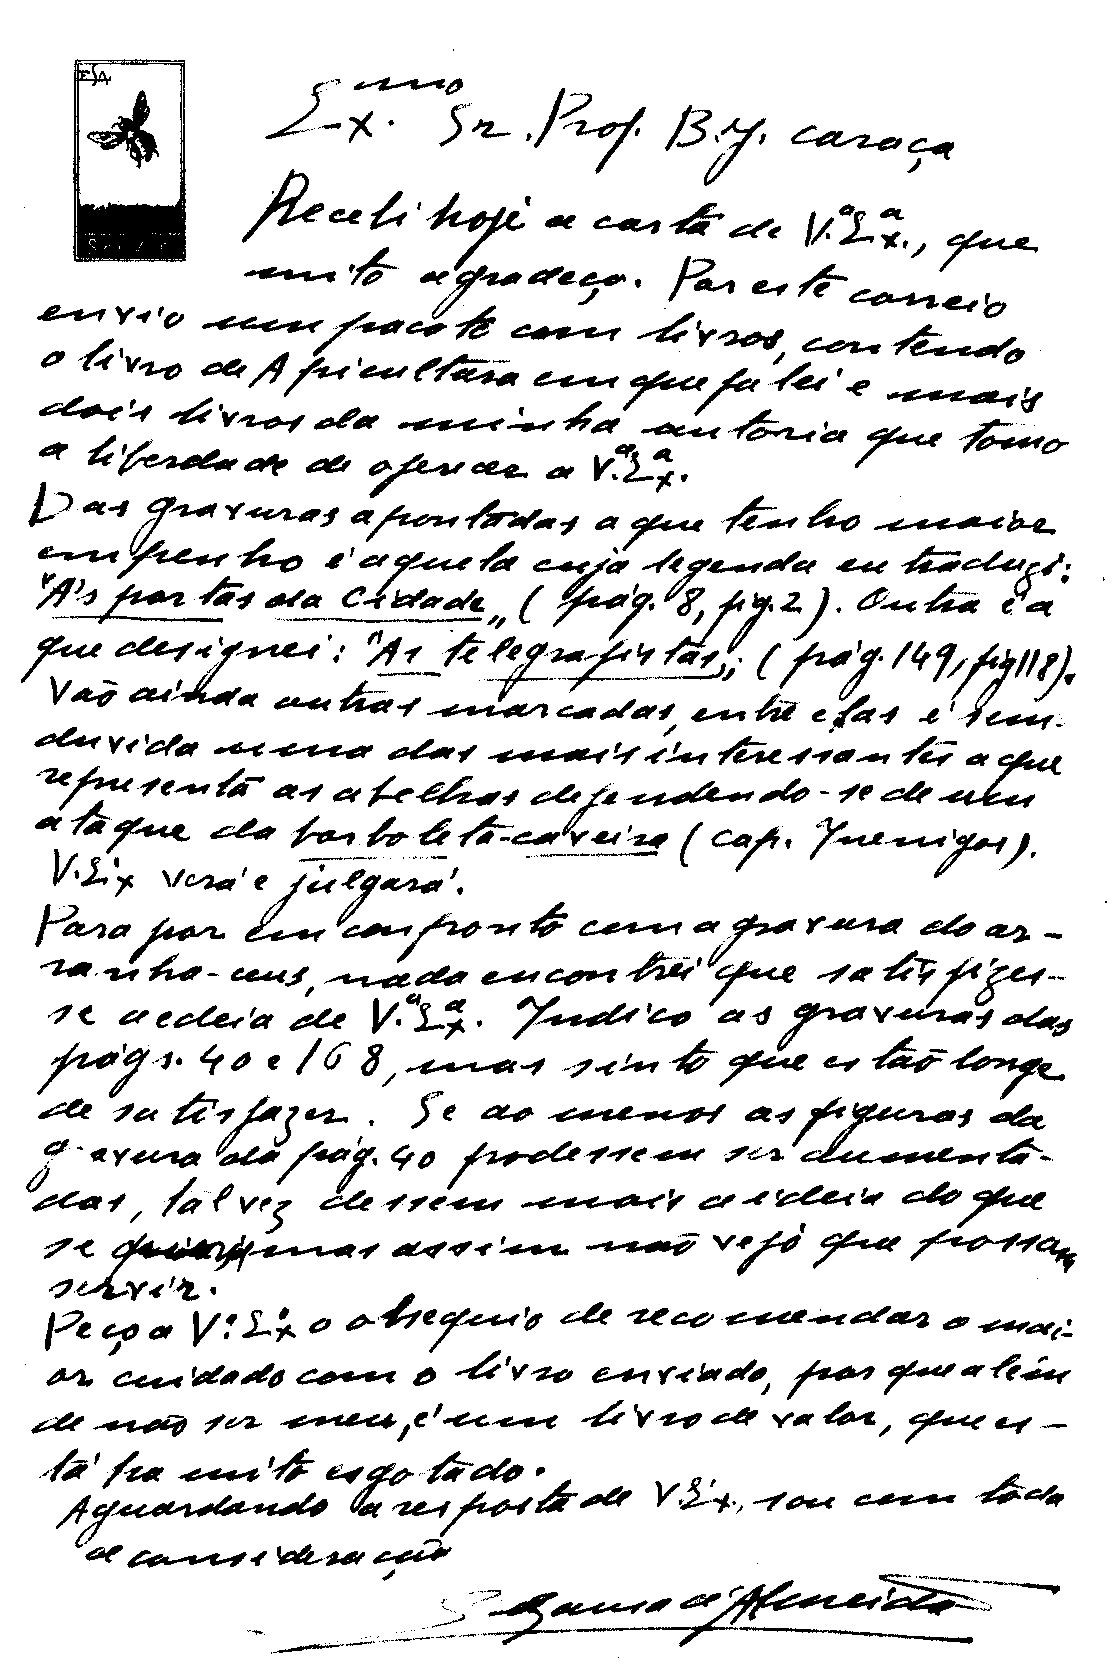 ESA
Ex.mo Sr. Prof. B. J. Caraça
Recebi hoje a carta de V.ª Ex.ª, que
muito agradeço. Por este correio
envio um pacote com livros, contendo
o livro de Apicultura em que falei e mais
dois livros da minha autoria que tomo
a liberdade de oferecer a V.ª Ex.ª.
Das gravuras apontadas a que tenho maior
empenho é aquela cuja legenda eu traduzi:
"Às portas da Cidade" (pág. 8, fig. 2). Outra é a
que designei: "As telegrafistas"; (pág. 149, fig 118).
Vão ainda outras marcadas, entre elas é sem
duvida uma das mais interessantes a que
representa as abelhas defendendo-se de um
ataque da borboleta-caveira (cap. Inimigos).
V. Ex verá e julgará.
Para por em confronto com a gravura do ar-
ranha-ceus, nada encontrei que satisfizes-
se a edeia de V.ª Ex.ª. Indico as gravuras das
págs. 40 e 168, mas sinto que estão longe
de satisfazer. Se ao menos as figuras da
gravura da pág. 40 podessem ser aumenta-
das, talvez dessem mais a ideia do que
se mas assim não vejo que possam
servir.
Peço a V.ª Ex.ª o obsequio de recomendar o mai-
or cuidado com o livro enviado, porque além
de não ser meu, é um livro de valor, que es-
tá ha muito esgotado.
Aguardando a resposta de V. Ex., sou com toda
a consideração
Gama d'Almeida